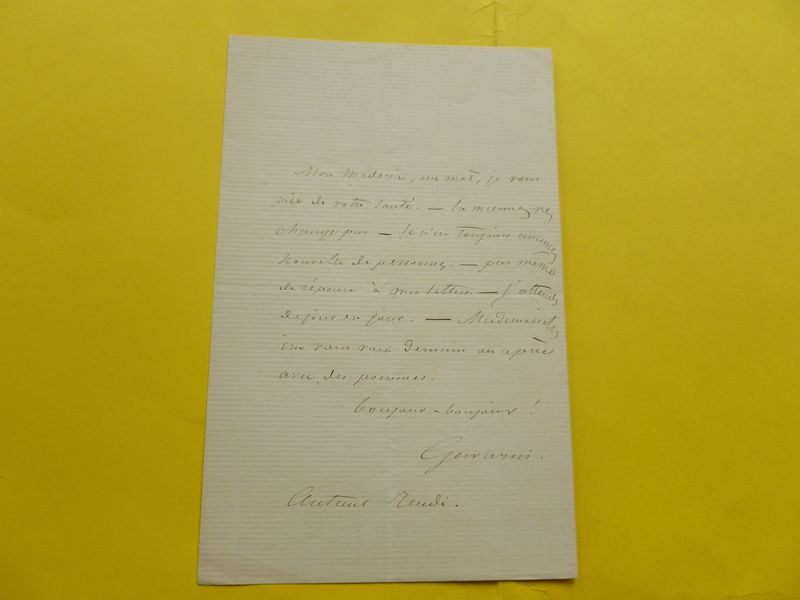 Mon médecin, un mot, je vous
prie de votre santé. — la mienne ne
change pas — Je n'ai toujours aucune
nouvelle de personne, — pas même
de réponse à mes lettres — J'attends
de jour en jour. — Mademoiselle
ira vous voir demain ou après
avec des pommes.
bonjour - bonjour !
Gavarni.
Auteuil Jeudi.